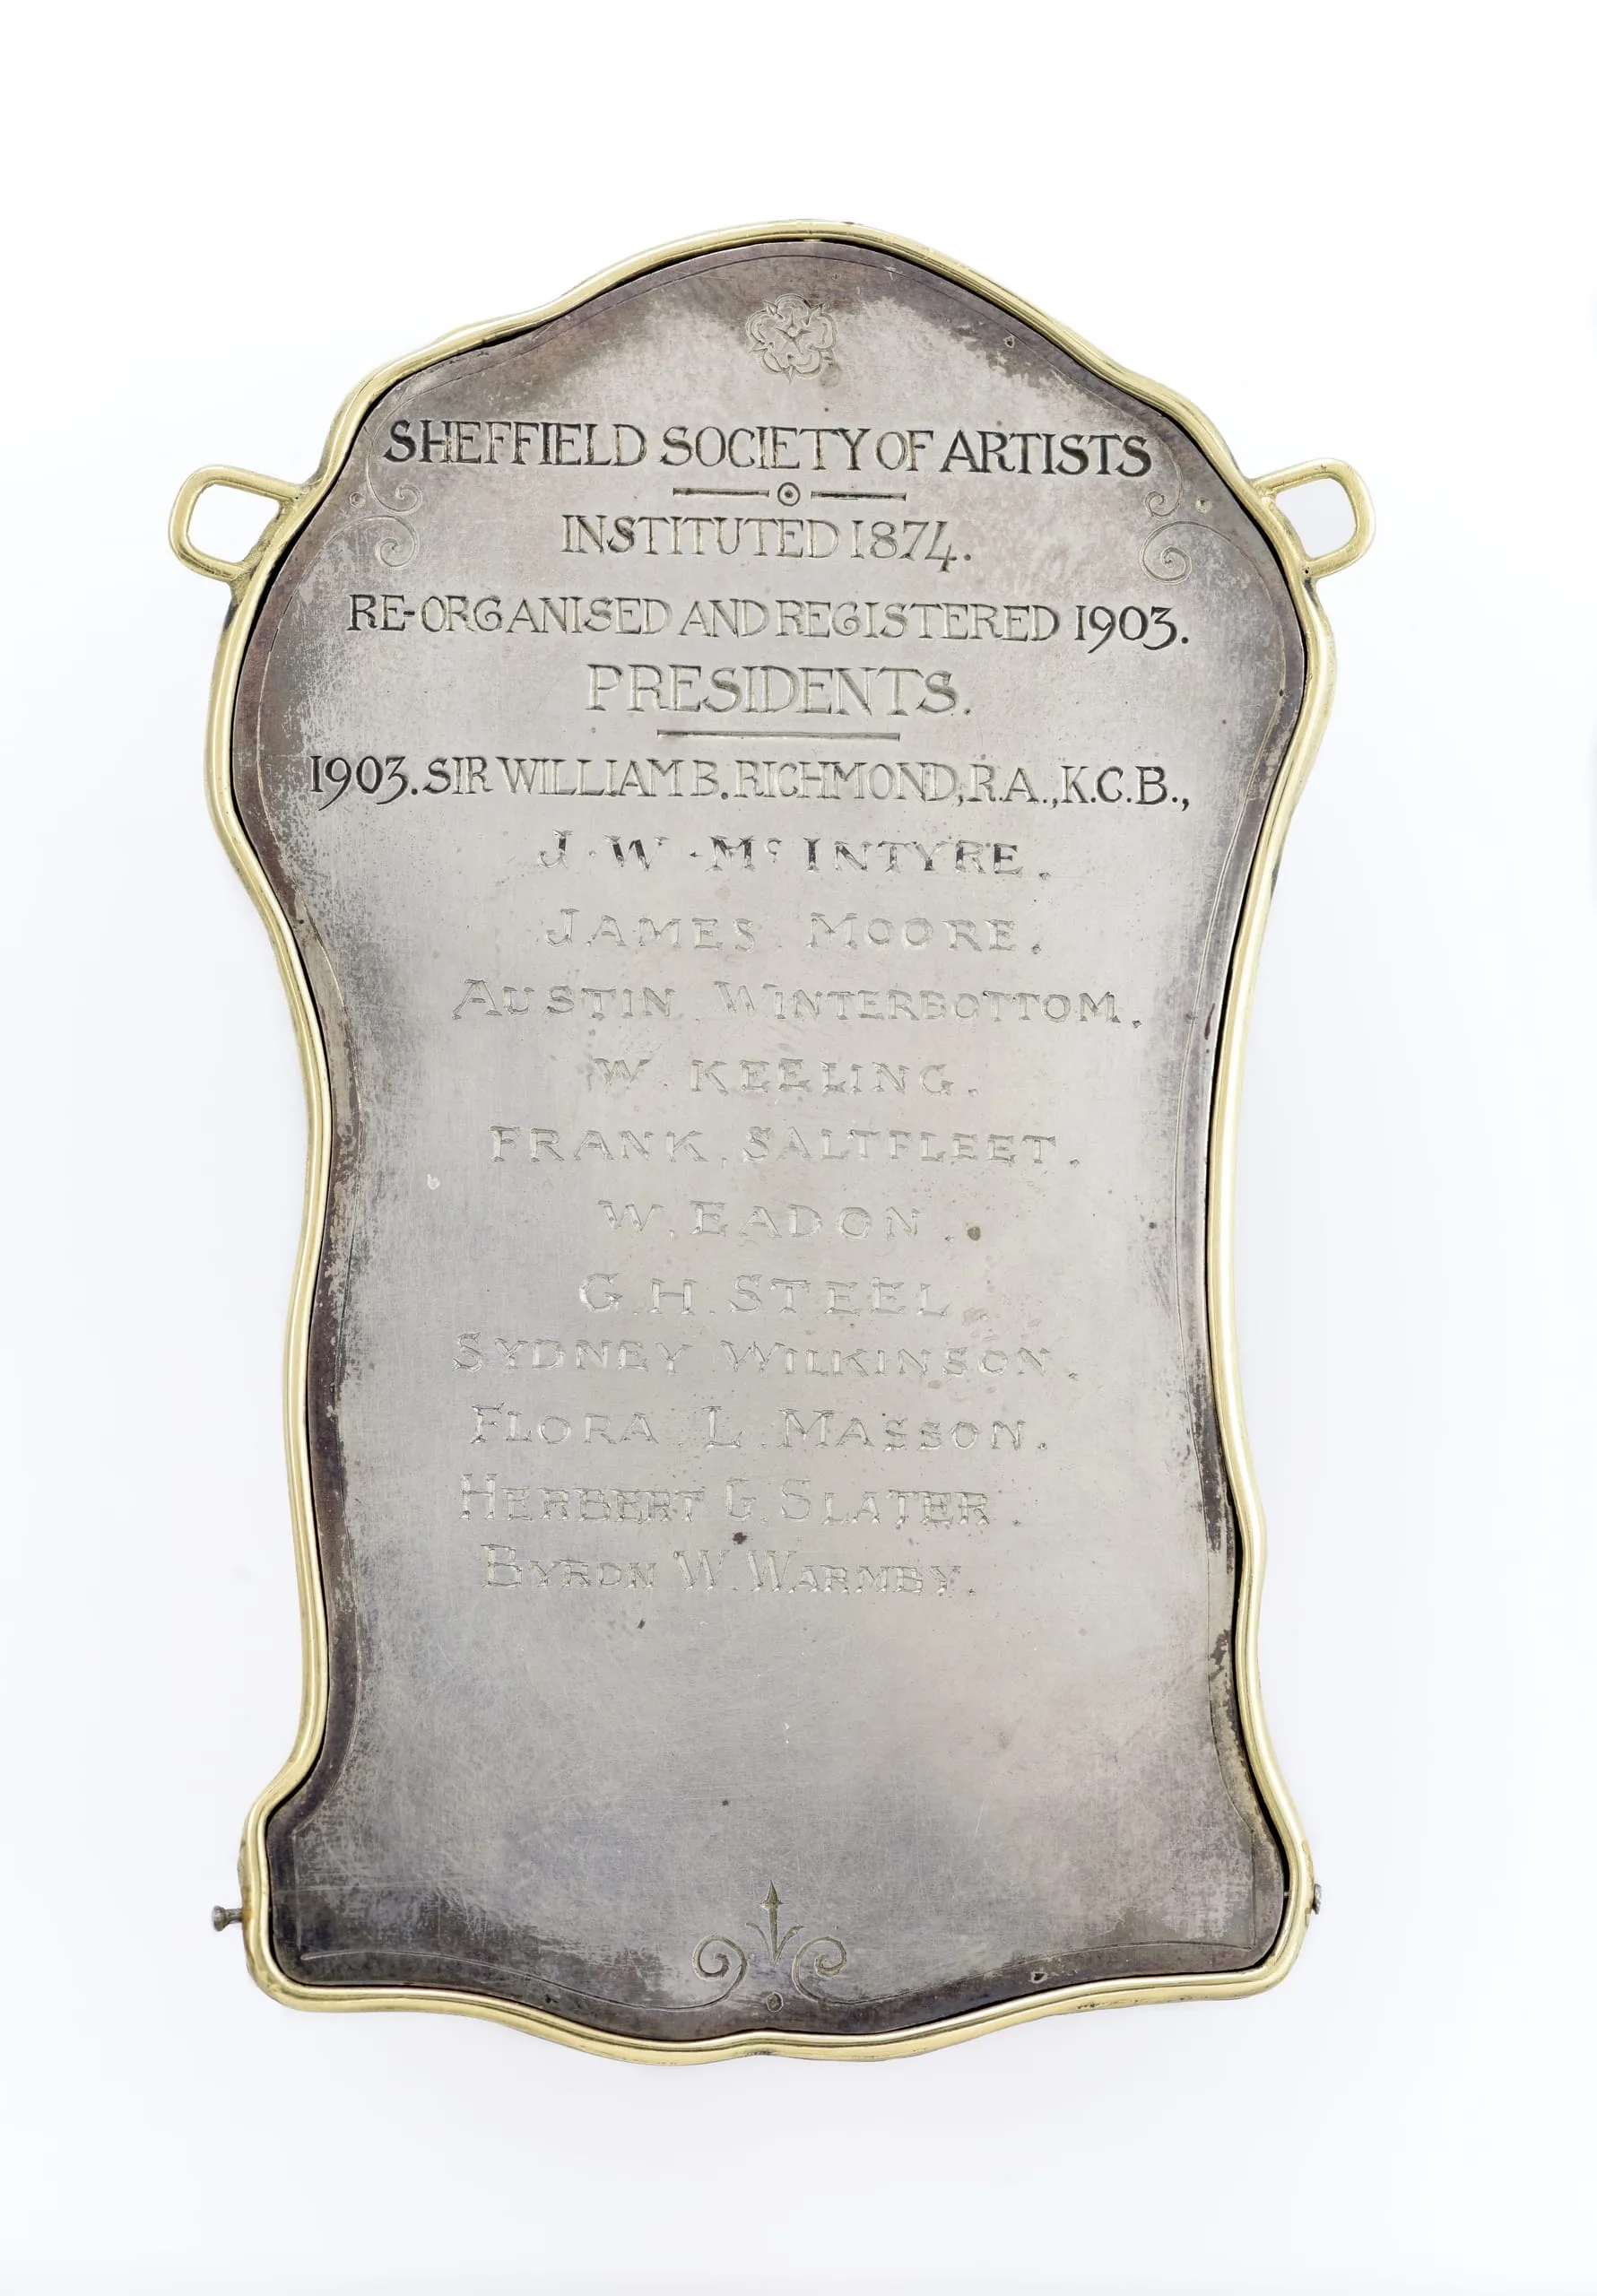 SHEFFIELD SOCIETY OF ARTISTS
INSTITUTED 1874.
RE-ORGANISED AND REGISTERED 1903.
PRESIDENTS.
1903. SIR WILLIAM B. RICHMOND, R.A., K.C.B.,
J. W. Mc INTYRE.
JAMES MOORE.
AUSTIN WINTERBOTTOM.
W. KEELING.
FRANK SALTFLEET.
W. EADON.
G. H. STEEL.
SYDNEY WILKINSON.
FLORA L. MASSON.
HERBERT G. SLATER.
BYRON W. WARMBY.